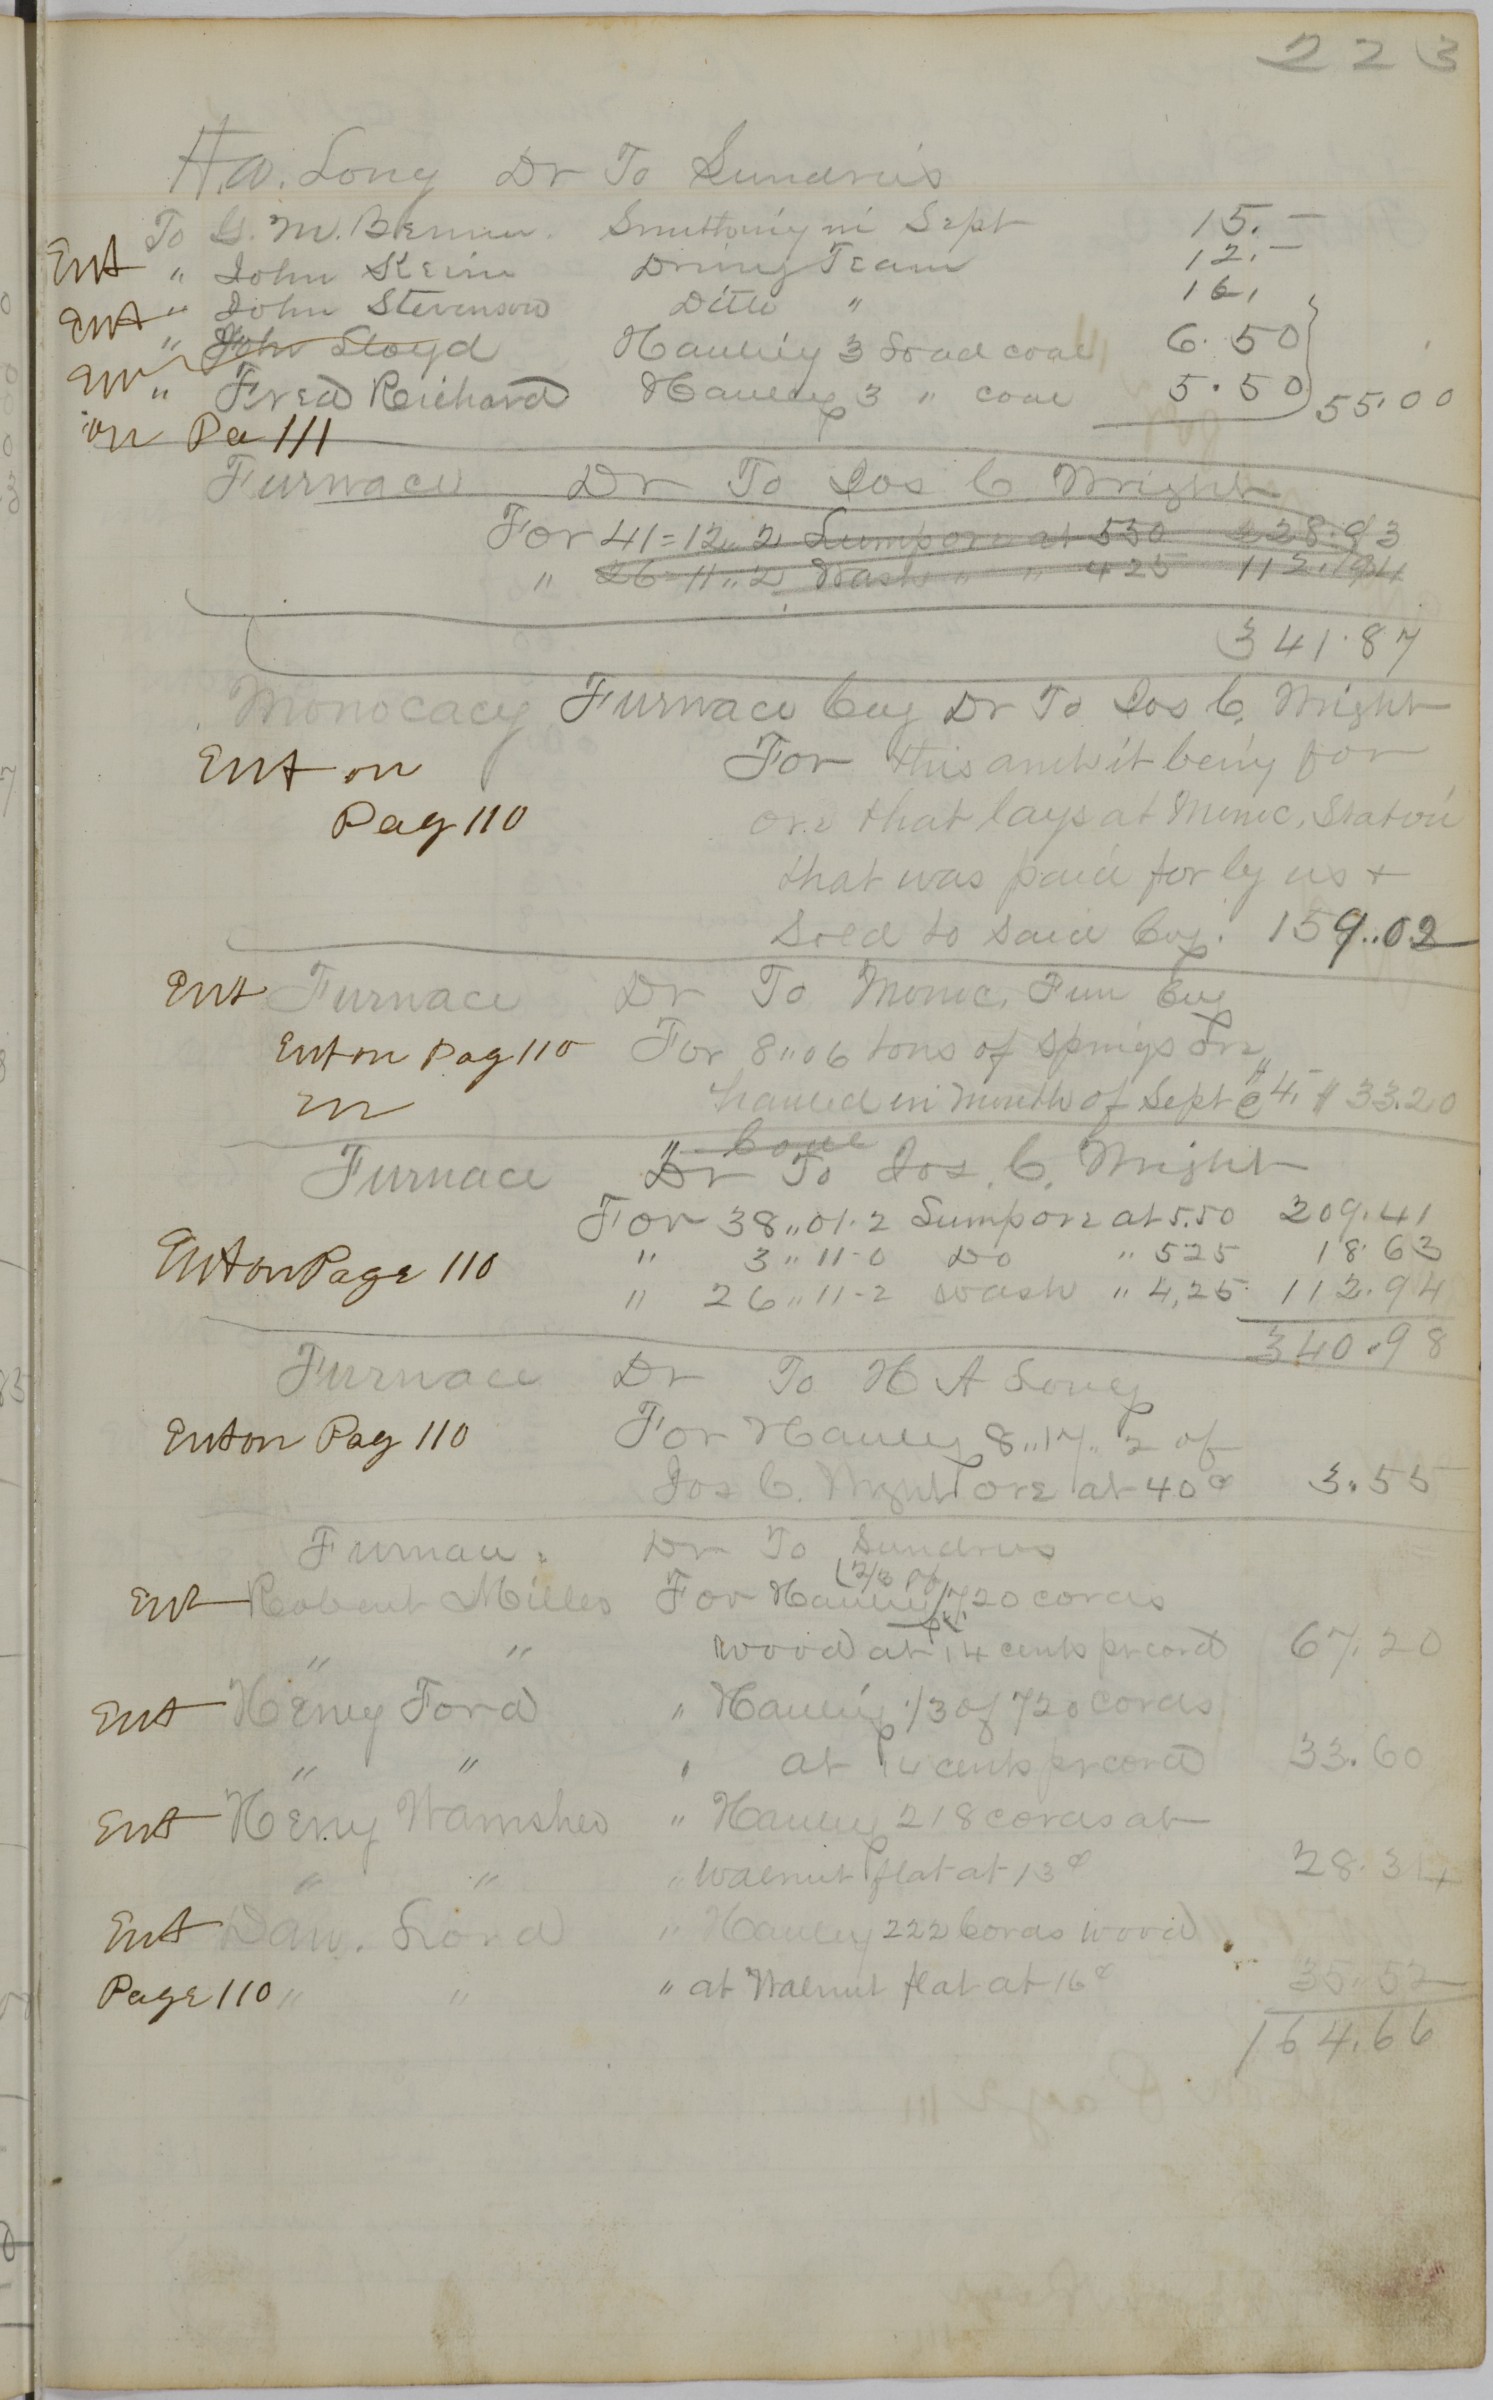 223
H.A. Long Dr To Sundries
To G. M. Smithing in Sept 15.—
Ent " John Klein Driving Team 12.—
Ent " John Stevenson Ditto " 16,
" John Lloyd Hauling 3 Load coal 6.50
Ent " Fred Richard Hauling 3 " coal 5.50 55.00
on Pa 111
Furnace Dr To Jos C Wright
For 41=12..2 Lump ore at 550 228.93
" 26=11..2 Wash " " 425 112.94
341.87
Monocacy Furnace Coy Dr To Jos C. Wright
Ent on For this amt it being for
Pag 110 ore that lays at Monoc. Station
that was paid for by us +
Sold to Said Coy. 159..02
Ent Furnace Dr To Monoc. Fur Coy
Ent on Pag 110 For 8..06 tons of Springs Ore
hauled in month of Sept @ 4.— $33.20
" Coal
Furnace Dr To Jos. C. Wright
For 38..01-2 Lump ore at 5.50 209.41
Ent on Page 110 " 3..11-0 Do " 525 18.63
" 26..11-2 wash " 4,25 112.94
340.98
Furnace Dr To H A Long
Ent on Pag 110 For Hauling 8..17..2 of
Jos C. Wright ore at 40c 3.55
Furnace Dr To Sundries
(2/3 of
Ent Robert Miller For Hauling 720 cords
" " wood at 14 cents pr cord 67.20
Ent Henry Ford " Hauling 1/3 of 720 cords
" " " at 14 cents pr cord 33.60
Ent Henry " Hauling 218 cords at
" " " Walnut flat at 13c 28.34
Ent " Hauling 222 Cords wood
Page 110 " " " at Walnut flat at 16c 35.52
164.66